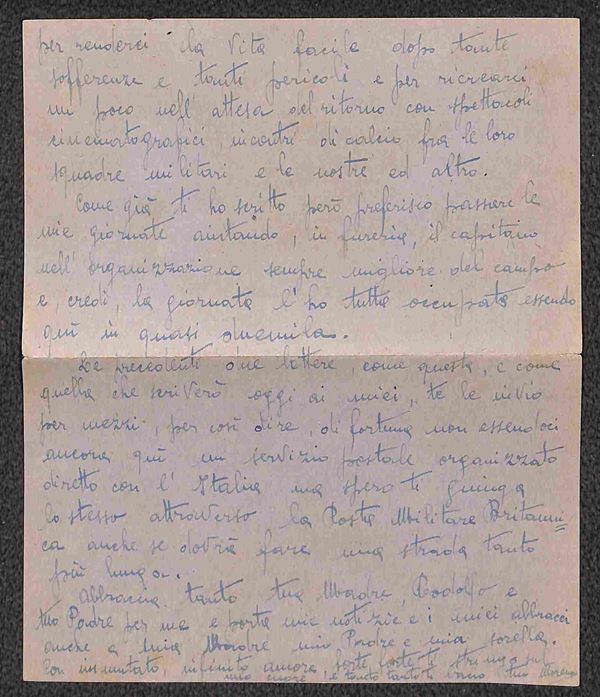 per renderci la vita facile dopo tante
sofferenze e tanti pericoli e per ricrearci
un poco nell'attesa del ritorno con spettacoli
cinematografici, incontri di calcio fra le loro
squadre militari e le nostre ed altro.
Come già ti ho scritto però preferisco passare le
mie giornate aiutando, in fureria, il capitano
nell'organizzazione sempre migliore del campo
e, credi, la giornata l'ho tutta occupata essendo
qui in quasi duemila.
Le precedenti due lettere, come questa, e come
quella che scriverò oggi ai miei, te le invio
per mezzi, per così dire, di fortuna non essendoci
ancora qui un servizio postale organizzato
diretto con l'Italia ma spero ti giunga
lo stesso attraverso la Posta Militare Britanni=
ca anche se dovrà fare una strada tanto
più lunga...
Abbraccia tanto tua Madre, Rodolfo e
tuo Padre per me e porta mie notizie e i miei abbracci
anche a mia Madre mio Padre e mia sorella.
Con immutato, infinito amore forte forte ti stringo sul
mio cuore e tanto tanto ti bacio tuo